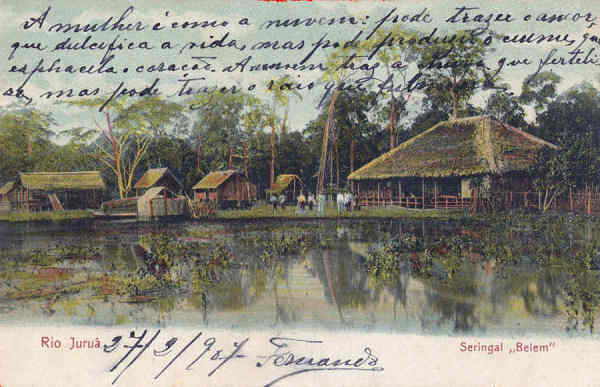 A mulher é como a nuvem: pode trazer o amor
que dulcifica a vida, mas pode produzir o ciume, que
esphacela o coração. A nuvem traz a chuva que fertili-
sa, mas pode trazer o raio que fulmina.
Rio Juruá 27/2/907 Fernando Seringal „Belem"